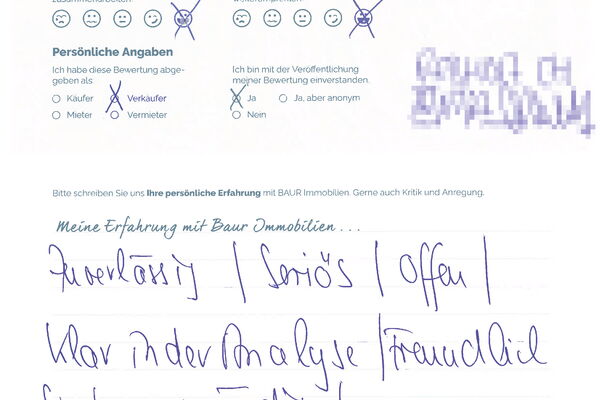 zusammenarbeiten.
weiterempfehlen.
Persönliche Angaben
Ich habe diese Bewertung abge- Ich bin mit der Veröffentlichung
geben als: meiner Bewertung einverstanden.
Käufer Verkäufer Ja Ja, aber anonym
Mieter Vermieter Nein
Bitte schreiben Sie uns Ihre persönliche Erfahrung mit BAUR Immobilien. Gerne auch Kritik und Anregung.
Meine Erfahrung mit Baur Immobilien ...
Zuverlässig | Seriös | Offen |
Klar in der Analyse | Freundlich